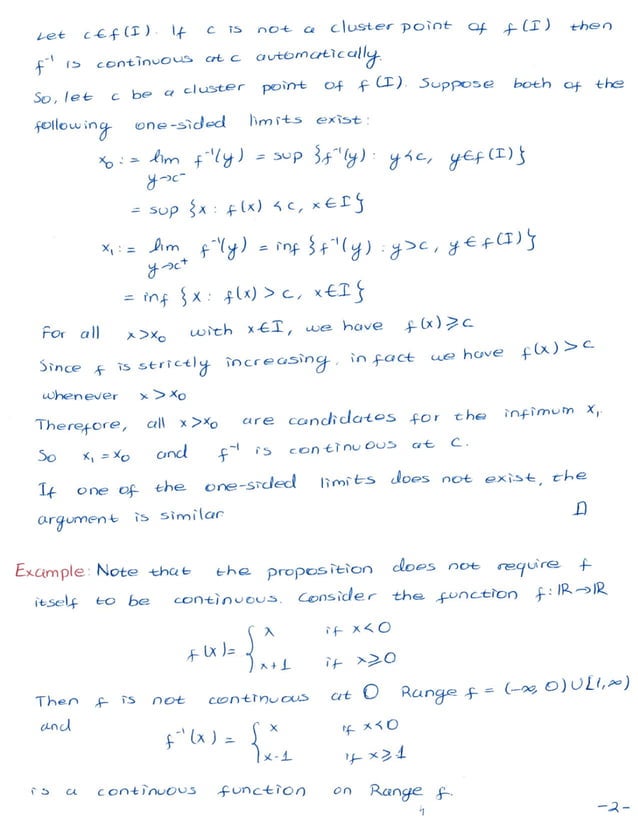 Let c∈f(I). If c is not a cluster point of f(I) then
f⁻¹ is continuous at c automatically.
So, let c be a cluster point of f(I). Suppose both of the
following one-sided limits exist:
x₀ := lim f⁻¹(y) = sup {f⁻¹(y) : y<c, y∈f(I)}
y→c⁻
= sup {x : f(x) < c, x∈I}
x₁ := lim f⁻¹(y) = inf {f⁻¹(y) : y>c, y∈f(I)}
y→c⁺
= inf {x : f(x) > c, x∈I}
For all x>x₀ with x∈I, we have f(x)⩾c
Since f is strictly increasing, in fact we have f(x)>c
whenever x>x₀
Therefore, all x>x₀ are candidates for the infimum x₁.
So x₁ = x₀ and f⁻¹ is continuous at c.
If one of the one-sided limits does not exist, the
argument is similar □
Example: Note that the proposition does not require f
itself to be continuous. Consider the function f: ℝ→ℝ
f(x) = { x if x<0
x+1 if x⩾0
Then f is not continuous at 0 Range f = (-∞, 0)∪[1,∞)
and
f⁻¹(x) = { x if x<0
x-1 if x⩾1
is a continuous function on Range f.
-2-